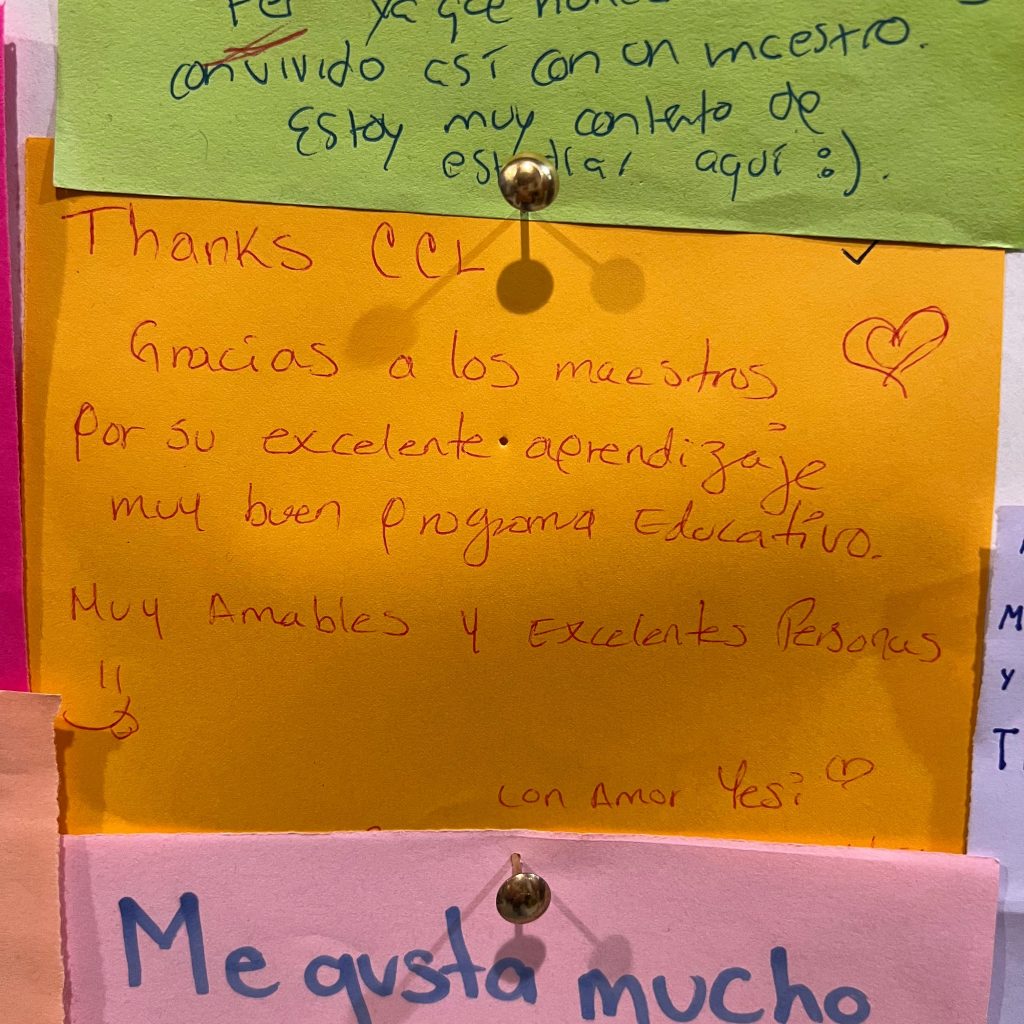 ya que
convivido así con un maestro.
Estoy muy contento de
estudiar aquí :).
Thanks CCL
Gracias a los maestros
por su excelente aprendizaje
muy buen programa Educativo.
Muy Amables y Excelentes Personas
con Amor Yesi
Me gusta mucho
M
y
T